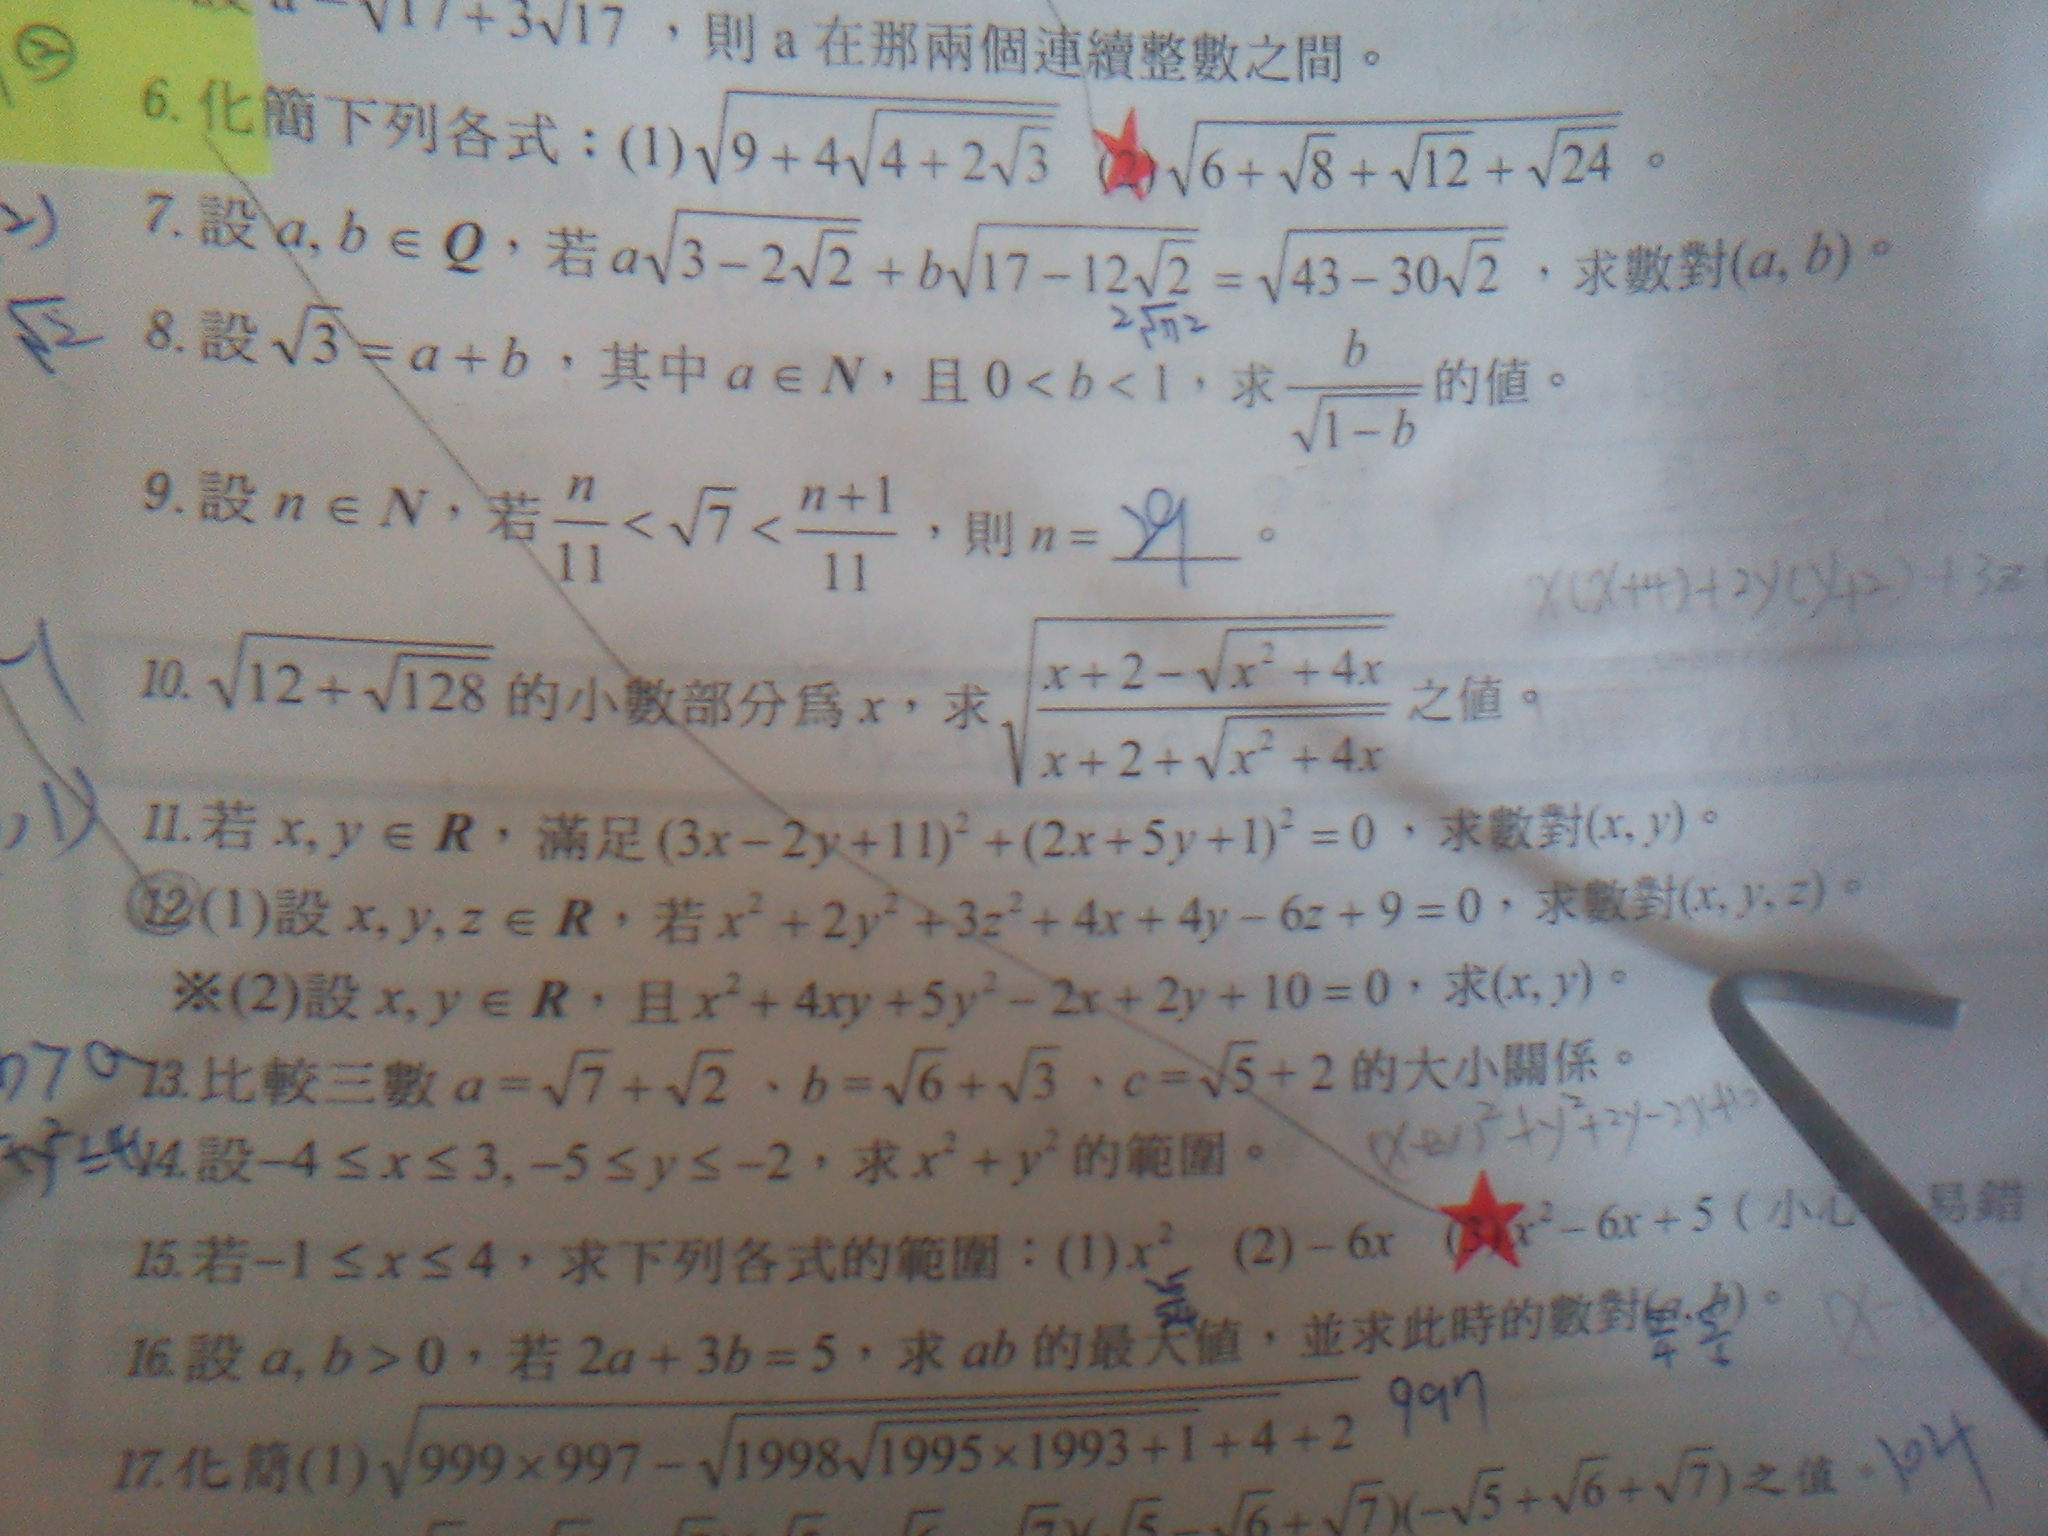 √17+3√17 ，則 a 在那兩個連續整數之間。
6. 化簡下列各式：(1)√(9+4√(4+2√3)) (2)√(6+√8+√12+√24) 。
7. 設 a, b ∈ Q，若 a√(3−2√2) + b√(17−12√2) = √(43−30√2) ，求數對(a, b)。
8. 設 √3 = a + b ，其中 a ∈ N，且 0 < b < 1，求 b/√(1−b) 的值。
9. 設 n ∈ N，若 n/11 < √7 < (n+1)/11 ，則 n = 。
x(x+4)+2y(y+2)+3z
10. √(12+√128) 的小數部分為 x，求 √((x+2−√(x²+4x))/(x+2+√(x²+4x))) 之值。
11. 若 x, y ∈ R，滿足 (3x−2y+11)² + (2x+5y+1)² = 0 ，求數對(x, y)。
12 (1)設 x, y, z ∈ R，若 x² + 2y² + 3z² + 4x + 4y − 6z + 9 = 0，求數對(x, y, z)。
※(2)設 x, y ∈ R，且 x² + 4xy + 5y² − 2x + 2y + 10 = 0，求(x, y)。
13. 比較三數 a = √7 + √2 、b = √6 + √3 、c = √5 + 2 的大小關係。
14. 設 −4 ≤ x ≤ 3, −5 ≤ y ≤ −2，求 x² + y² 的範圍。
15. 若 −1 ≤ x ≤ 4，求下列各式的範圍：(1) x² (2) − 6x (3) x² − 6x + 5 ( 小心 易錯
16. 設 a, b > 0，若 2a + 3b = 5，求 ab 的最大值，並求此時的數對(a, b)。
17. 化簡(1)√(999×997−√(1998√(1995×1993+1)+4)+2) 997
√7)(√5−√6+√7)(−√5+√6+√7) 之值。104